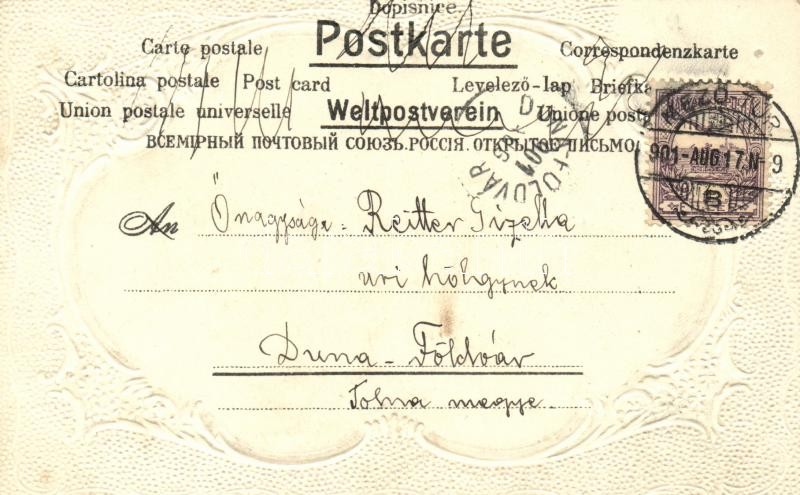 Dopisnice
Carte postale Postkarte Correspondenzkarte
Cartolina postale Post card Levelező-lap Briefka
Union postale universelle Weltpostverein Unione posta
ВСЕМІРНЫЙ ПОЧТОВЫЙ СОЮЗЪ. РОССІЯ. ОТКРЫТОЕ ПИСЬМО
DUNA-FÖLDVÁR
901
901-AUG 17. N-9
6
An Őnagysága Reitter Gizella
uri hölgynek
Duna-Földvár
Tolna megye.